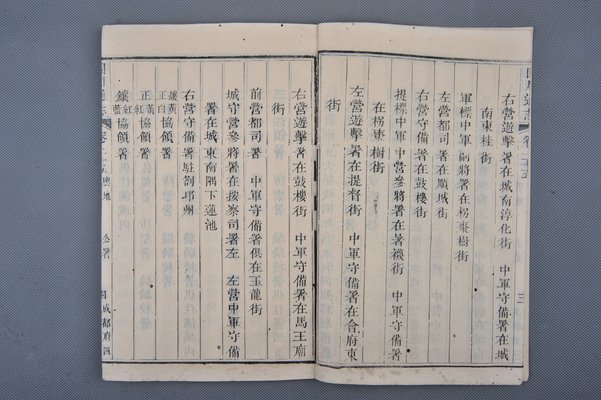 右營遊擊署在城南淳化街 中軍守備署在城
南東桂街
軍標中軍副將署在枴棗樹街
左營都司署在順城街 中軍守備署
右營守備署在鼓樓街
提標中軍中營參將署在署襪街 中軍守備署
在枴棗樹街
左營遊擊署在提督街 中軍守備署在會府東
街
右營遊擊署在鼓樓街 中軍守備署在馬王廟
街
前營都司署 中軍守備署俱在玉龍街
城守營參將署在按察司署左 左營中軍守備
署在城東南隅下蓮池
右營守備署駐劄邛州
鑲黃正白協領署
正黃正紅協領署
鑲紅鑲藍協領署
輿地 公署 成都府四